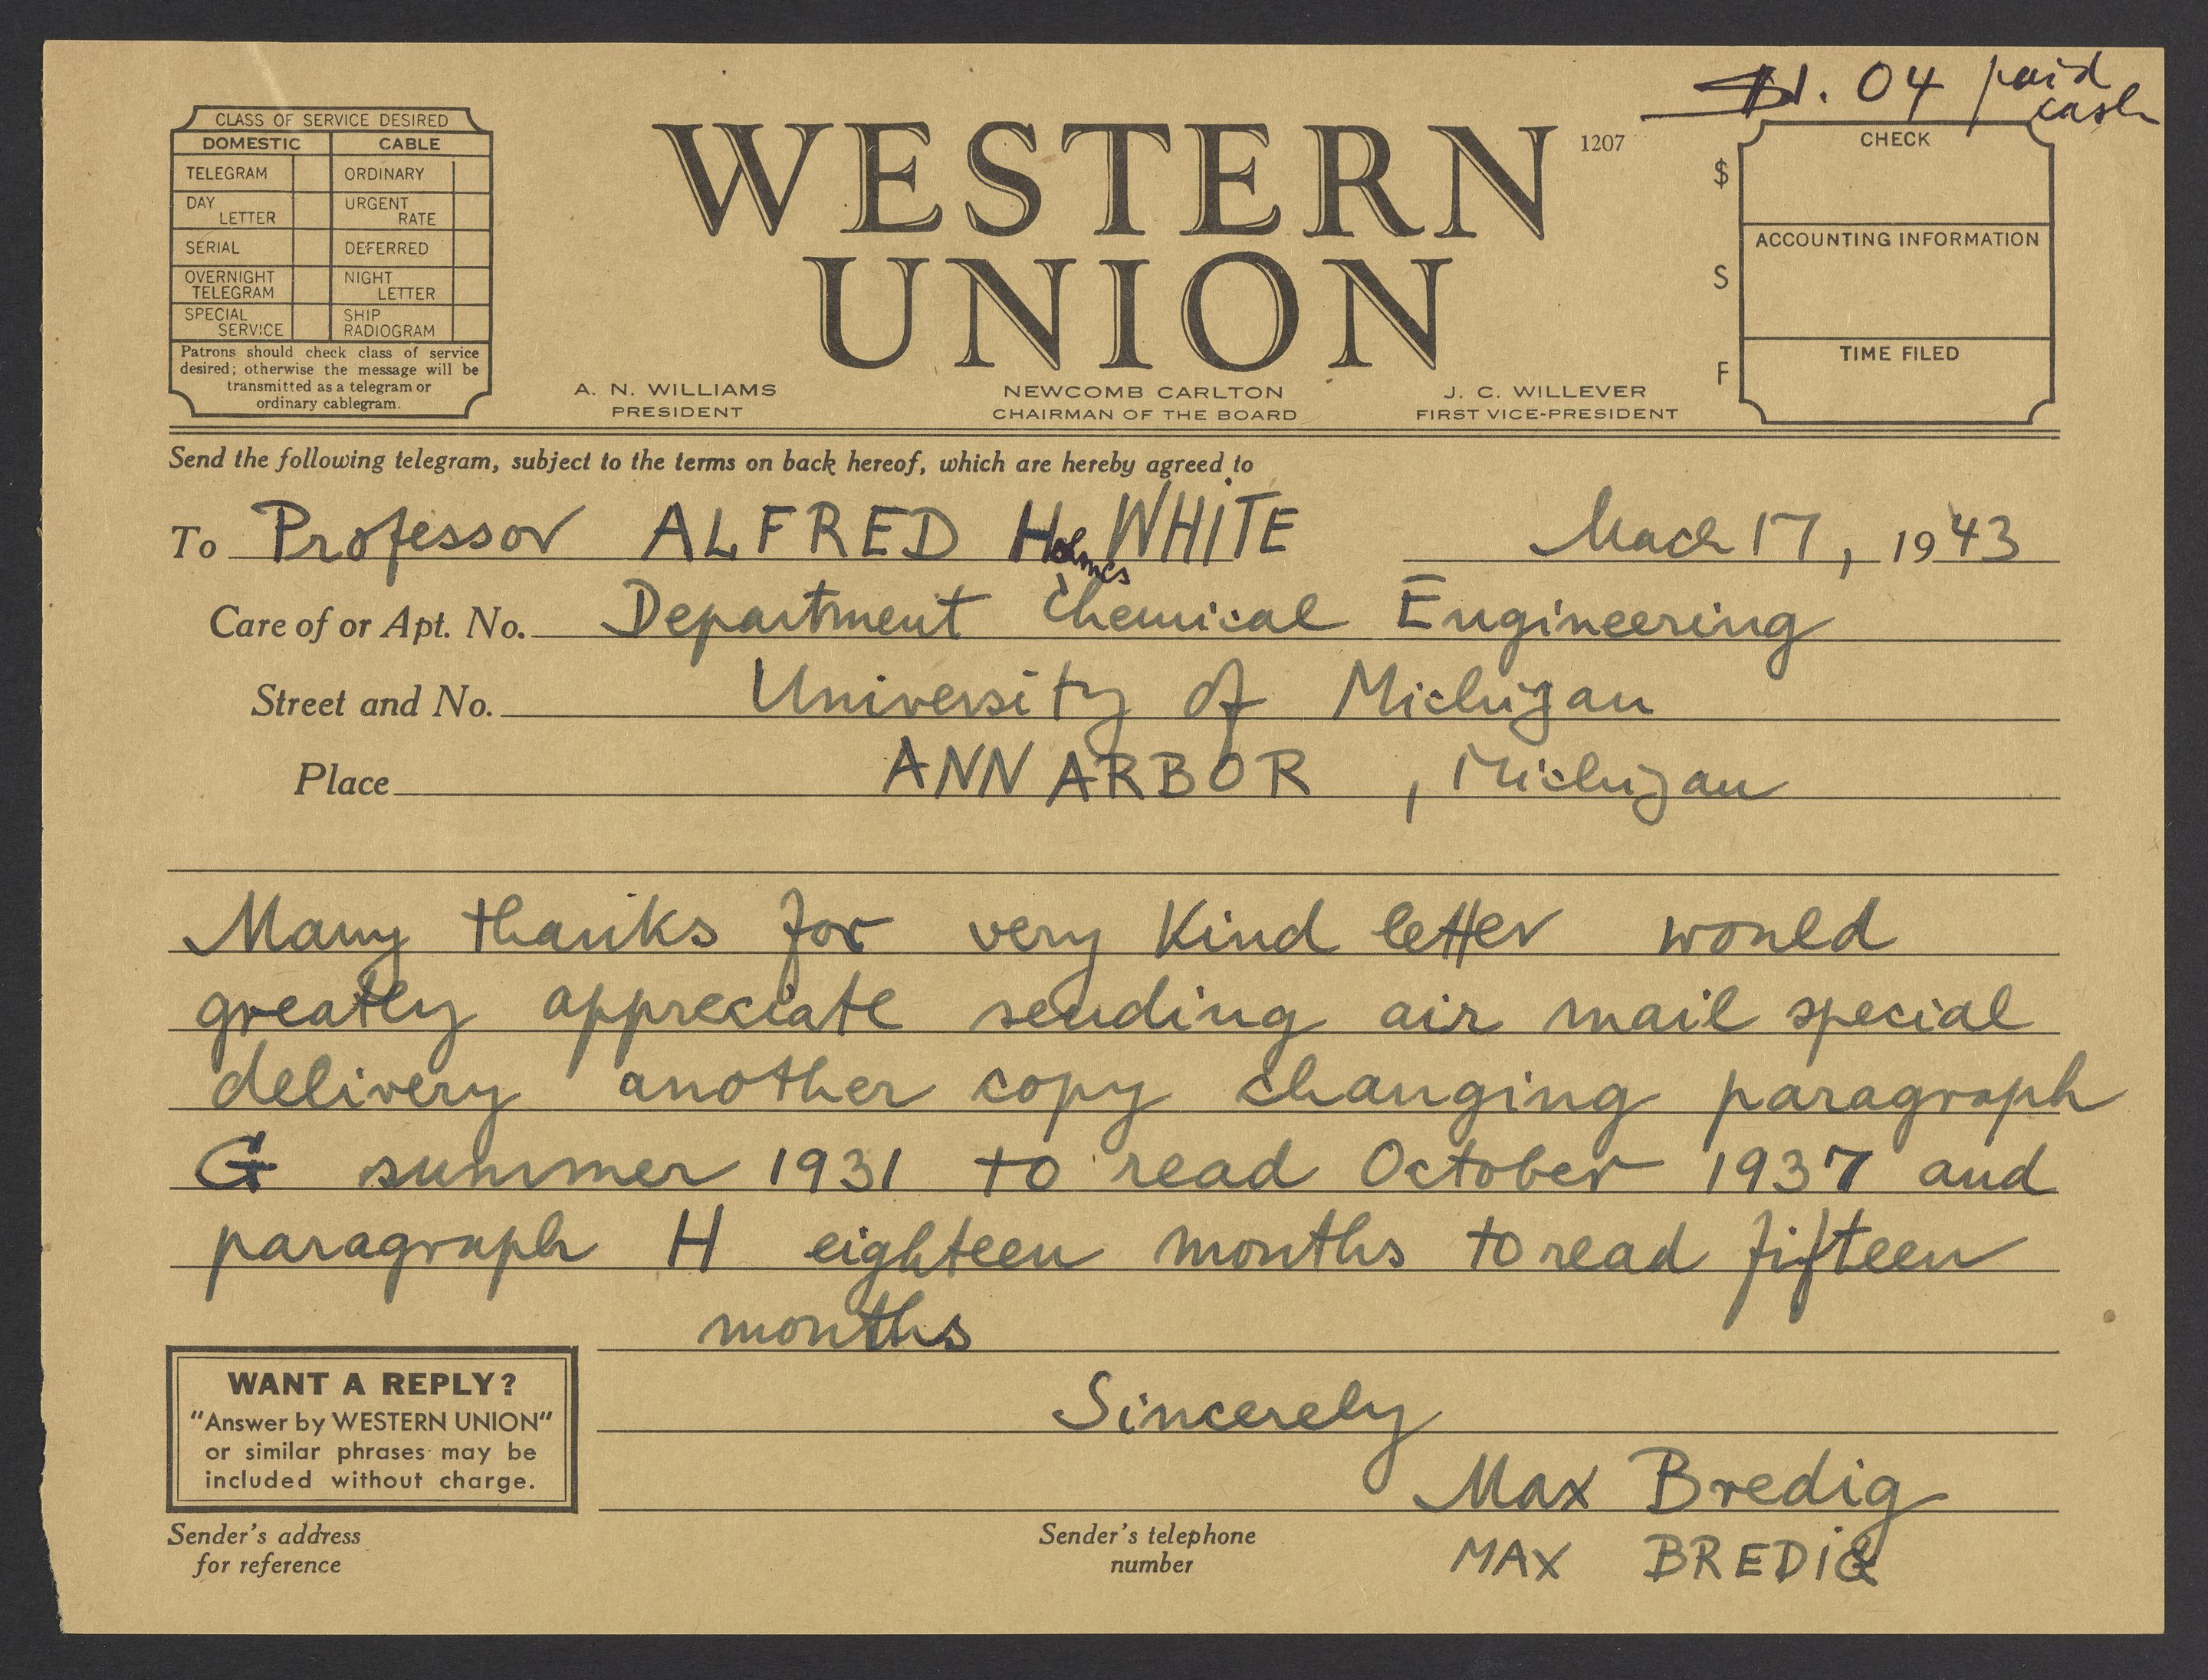 $1. 04 paid
cash
CLASS OF SERVICE DESIRED
DOMESTIC CABLE
TELEGRAM ORDINARY
DAY LETTER URGENT RATE
SERIAL DEFERRED
OVERNIGHT TELEGRAM NIGHT LETTER
SPECIAL SERVICE SHIP RADIOGRAM
Patrons should check class of service
desired; otherwise the message will be
transmitted as a telegram or
ordinary cablegram.
WESTERN
UNION
1207
A. N. WILLIAMS
PRESIDENT
NEWCOMB CARLTON
CHAIRMAN OF THE BOARD
J. C. WILLEVER
FIRST VICE-PRESIDENT
$
S
F
CHECK
ACCOUNTING INFORMATION
TIME FILED
Send the following telegram, subject to the terms on back hereof, which are hereby agreed to
To Professor ALFRED Holmes WHITE March 17, 1943
Care of or Apt. No. Department Chemical Engineering
Street and No. University of Michigan
Place ANN ARBOR, Michigan
Many thanks for very kind letter would
greatly appreciate sending air mail special
delivery another copy changing paragraph
G summer 1931 to read October 1937 and
paragraph H eighteen months to read fifteen
months
Sincerely
Max Bredig
MAX BREDIG
WANT A REPLY?
"Answer by WESTERN UNION"
or similar phrases may be
included without charge.
Sender's address
for reference
Sender's telephone
number